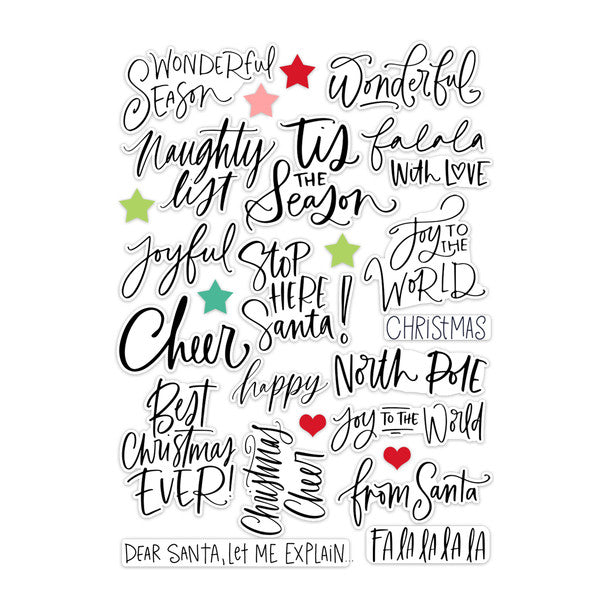 WONDERFUL
SEASON
Wonderful
Naughty
list
Tis
THE
Season
falala
With LOVE
Joyful
Stop
HERE
Santa!
Joy TO
THE
WORLD
CHRISTMAS
Cheer
happy
NORTH POLE
Best
Christmas
EVER!
Christmas
Cheer
Joy TO THE World
from Santa
DEAR SANTA, LET ME EXPLAIN...
FA LA LA LA LA